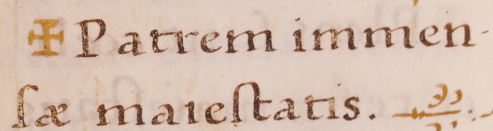 ✠ Patrem immen-
ſæ maieſtatis.